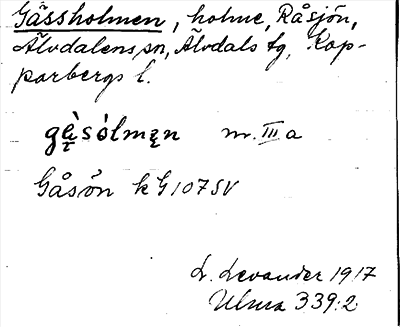 Gåssholmen, holme, Råsjön,
Älvdalens sn, Älvdals tg, Kop-
parbergs l.
nr. III a
Gåsön k G107SV
L. Levander 1917
Ulma 339:2.